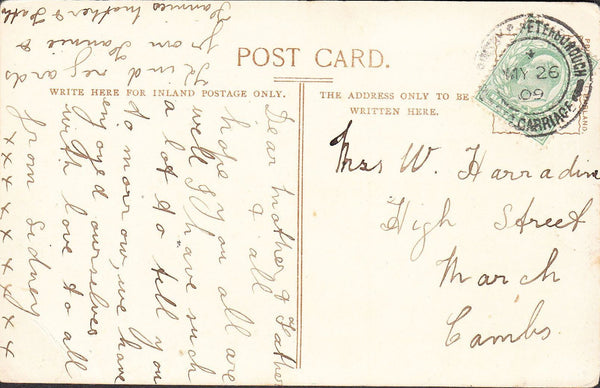 POST CARD.
WRITE HERE FOR INLAND POSTAGE ONLY.
THE ADDRESS ONLY TO BE
WRITTEN HERE.
Dear Mother & Father
& all
hope you all are
well I have such
a lot to tell you
to morrow, we have
enjoyed ourselves
with love to all
from Sidney
x x x x x x x x
Kind regards
from Fannie &
Fannies Mother & Fath
Mrs W. Harradine
High Street
March
Cambs.
PETERBOROUGH
MY 26
09
CARRIAGE